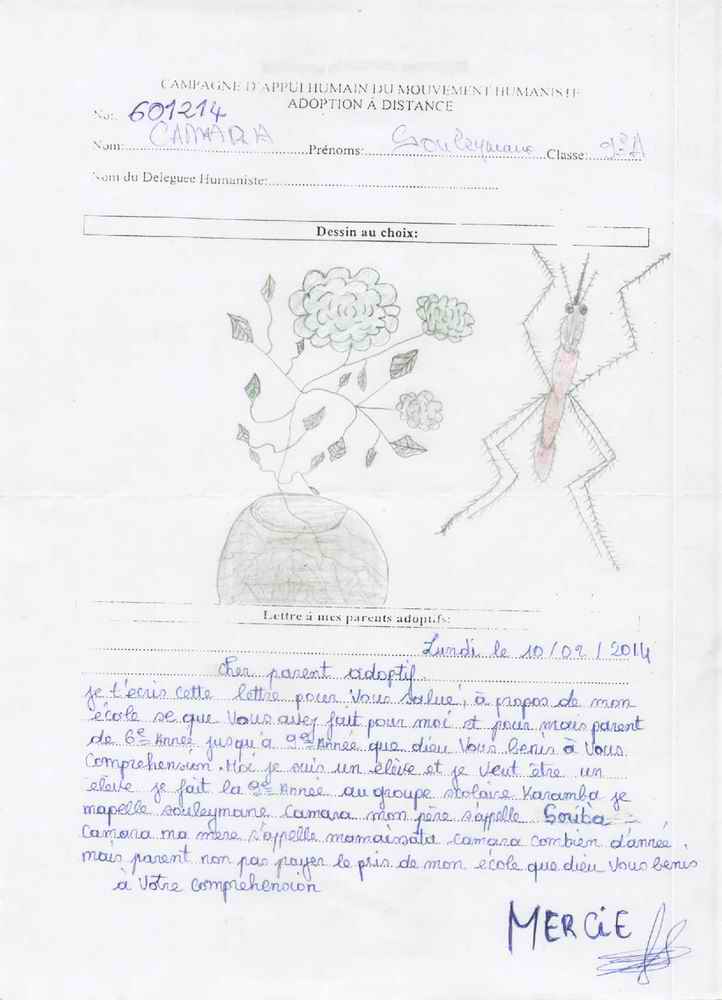 CAMPAGNE D'APPUI HUMAIN DU MOUVEMENT HUMANISTE
ADOPTION À DISTANCE
No: 601214
Nom: CAMARA Prénoms: Souleymane Classe: 9e A
Nom du Deleguee Humaniste:
Dessin au choix:
Lettre à mes parents adoptifs:
Lundi le 10/02/2014
cher parent adoptif.
je t'ecris cette lettre pour Vous salué, à propos de mon
école se que Vous avez fait pour moi et pour mais parent
de 6e Année jusqu'à 9e Année que dieu Vous benis à Vous
Comprehension. Moi je suis un elève et je veut être un
eleve je fait la 9e Année au groupe scolaire Karamba je
mapelle souleymane Camara mon père s'appelle Souiba
Camara ma mère s'appelle mamaissata camara combien d'année
mais parent non pas payer le pris de mon école que dieu Vous benis
à Votre comprehension
MERCIE